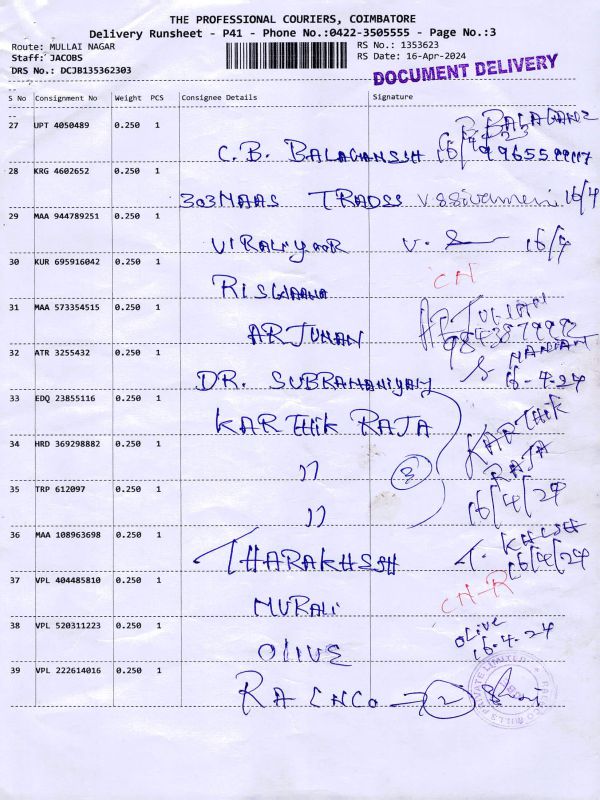 THE PROFESSIONAL COURIERS, COIMBATORE
Delivery Runsheet - P41 - Phone No.:0422-3505555 - Page No.:3
Route: MULLAI NAGAR
RS No.: 1353623
Staff: JACOBS
RS Date: 16-Apr-2024
DRS No.: DCJB135362303
DOCUMENT DELIVERY
S No Consignment No Weight PCS Consignee Details Signature
27 UPT 4050489 0.250 1
C.B. BALAGANSSH 16/4
28 KRG 4602652 0.250 1
303 MAAS TRADSS V.SSivamani 16/4
29 MAA 944789251 0.250 1
VIRALIYOOR V. S 16/4
30 KUR 695916042 0.250 1
RISWAANA CN
31 MAA 573354515 0.250 1
ARJUNAN ARJUNAN
9843879992
32 ATR 3255432 0.250 1
DR. SUBRAMANIYAM S 16-4-24
33 EDQ 23855116 0.250 1
KARTHIK RAJA
34 HRD 369298882 0.250 1
" 3 KARTHIK RAJA
35 TRP 612097 0.250 1
" 16/4/24
36 MAA 108963698 0.250 1
THARAKHSSH 16/4/24
37 VPL 404485810 0.250 1
MURALI CN-R
38 VPL 520311223 0.250 1
OLIVE olive
16.4.24
39 VPL 222614016 0.250 1
RA ENCO 2
MILLS PRIVATE LIMITED